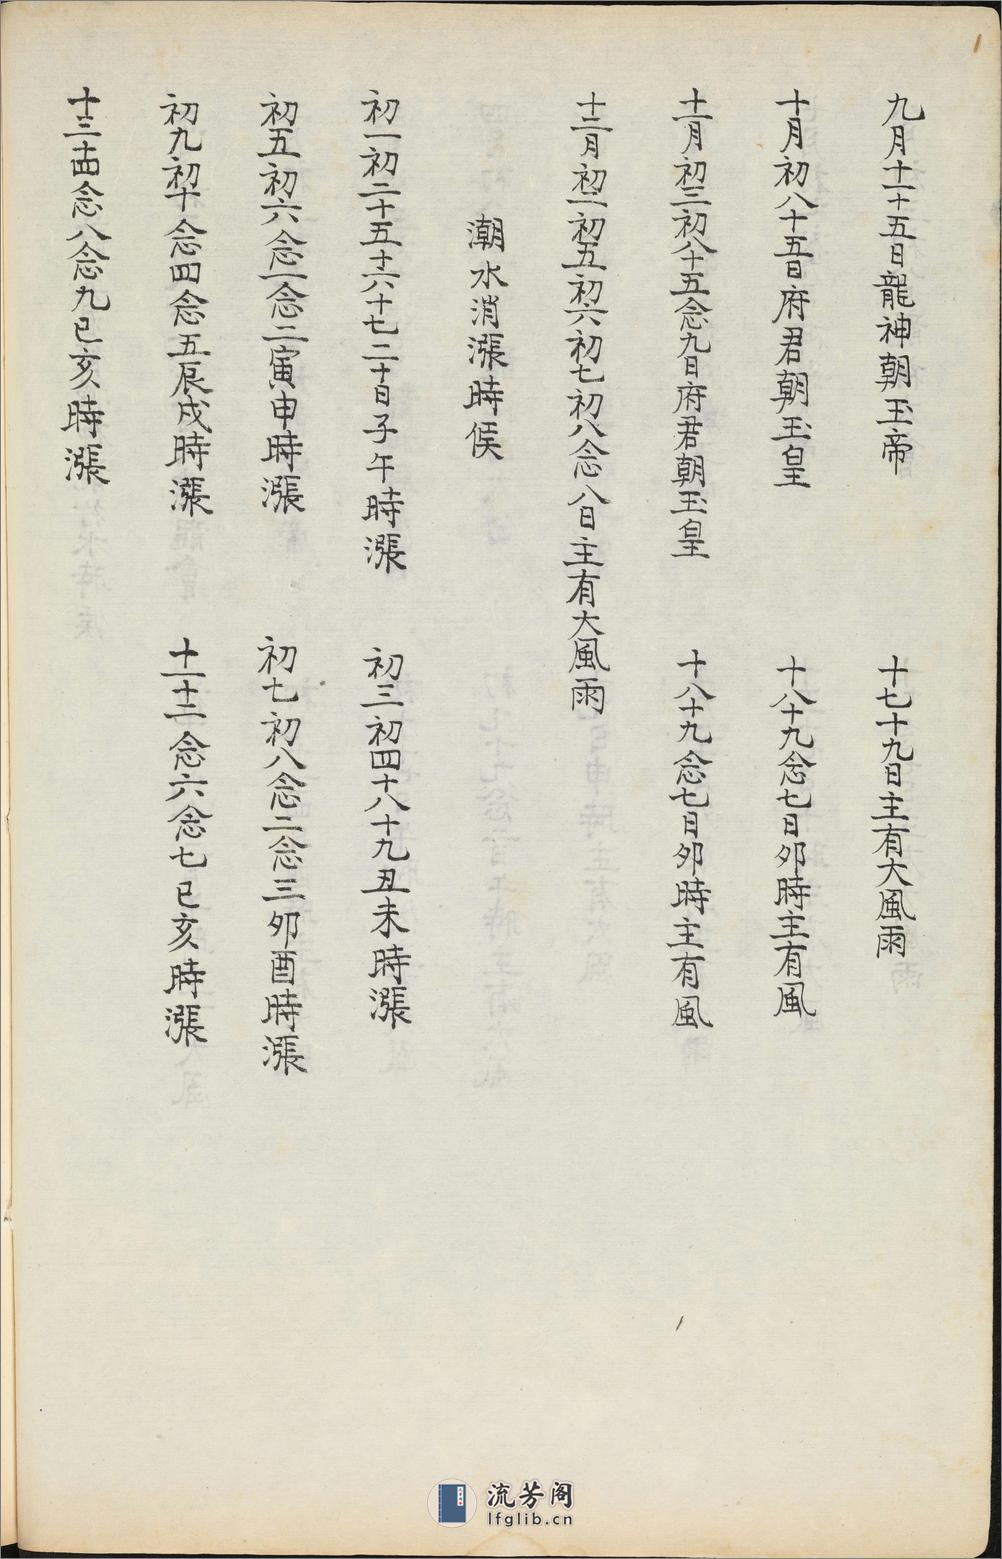 九月十一十五日龍神朝玉帝　十七十九日主有大風雨
十月初八十五日府君朝玉皇　十八十九念七日夘時主有風
十一月初三初八十五念九日府君朝玉皇　十八十九念七日夘時主有風
十二月初一初五初六初七初八念八日主有大風雨
潮水消漲時侯
初一初二十五十六十七二十日子午時漲　初三初四十八十九丑未時漲
初五初六念一念二寅申時漲　初七初八念二念三夘酉時漲
初九初十念四念五辰戌時漲　十一十二念六念七巳亥時漲
十三十四念八念九巳亥時漲
流芳阁
lfglib.cn